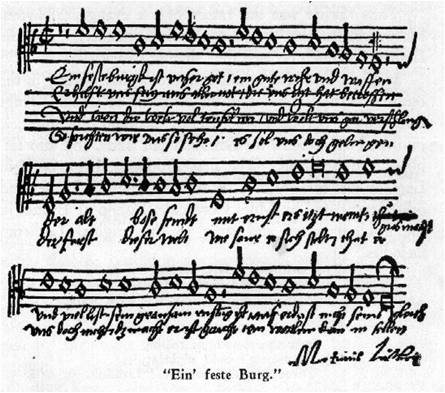 Ein feste burg ist vnser got / ein gute wehr und waffen
Er hilfft uns frey aus aller not / die uns itzt hat betroffen
Und wen die welt vol teuffel wer / und wolt uns gar verschling
So furchten wir uns so sehr / es sol uns doch gelingen
Der alt bose feindt mit ernst ers itzt meint gros macht
der furst dieser welt wie saur er sich stelt thut er
und viel list sein grausam rustung ist auf erd ist nicht seins gleich
uns doch nicht macht er ist gericht ein wortlin kan in fellen
Martinus Luther
"Ein' feste Burg."